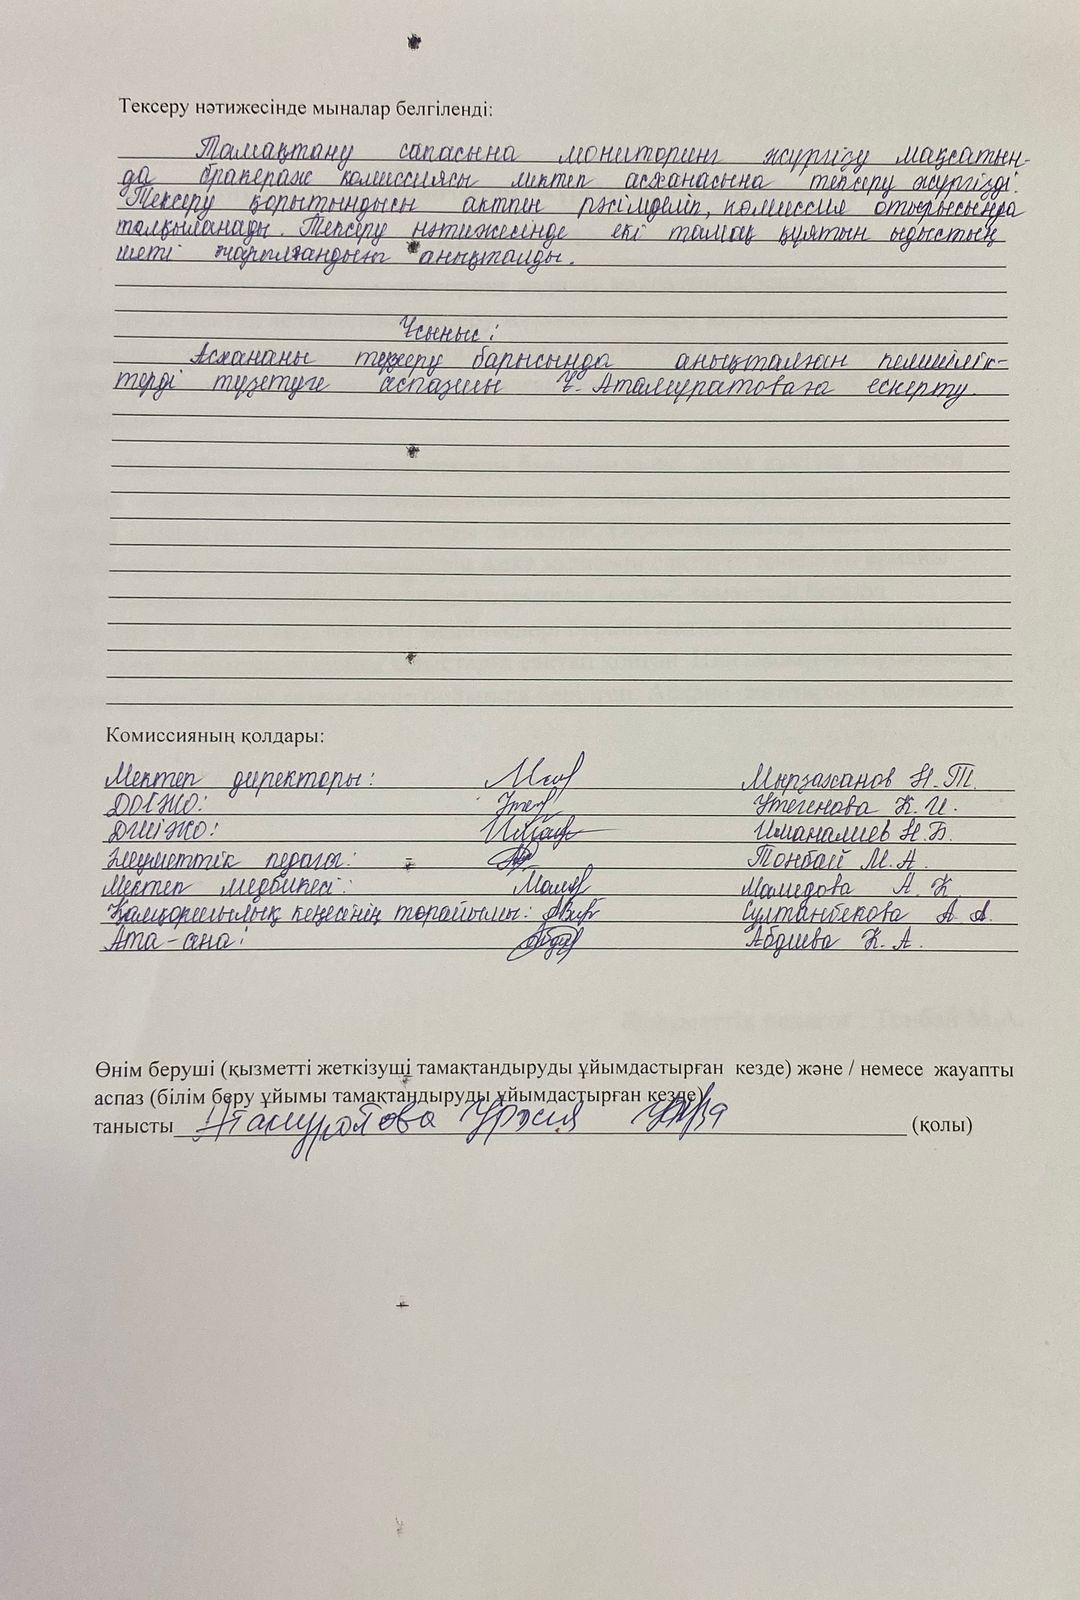 Тексеру нәтижесінде мыналар белгіленді:
Тамақтану сапасына мониторинг жүргізу мақсатын-
да бракераж комиссиясы мектеп асханасына тексеру жүргізді.
Тексеру қорытындысы актпен рәсімделіп, комиссия отырысында
талқыланады. Тексеру нәтижесінде екі тамақ құятын ыдыстың
шеті жарылғандығы анықталды.
Ұсыныс:
Асхананы тексеру барысында анықталған кемшілік-
терді түзетуге аспазшы Ү. Атамуратоваға ескерту.
Комиссияның қолдары:
Мектеп директоры: Мырзаханов Н.Т.
ДОІЖО: Утегенова К.И.
ДШІЖО: Иманалиев Н.Б.
Әлеуметтік педагог: Тонбай М.А.
Мектеп медбикесі: Мамедова А.К
Қамқоршылық кеңесінің төрайымы: Султанбекова А.А.
Ата-ана: Абдиева К.А.
Өнім беруші (қызметті жеткізуші тамақтандыруды ұйымдастырған кезде) және / немесе жауапты
аспаз (білім беру ұйымы тамақтандыруды ұйымдастырған кезде)
танысты Атамуратова Урзия (қолы)